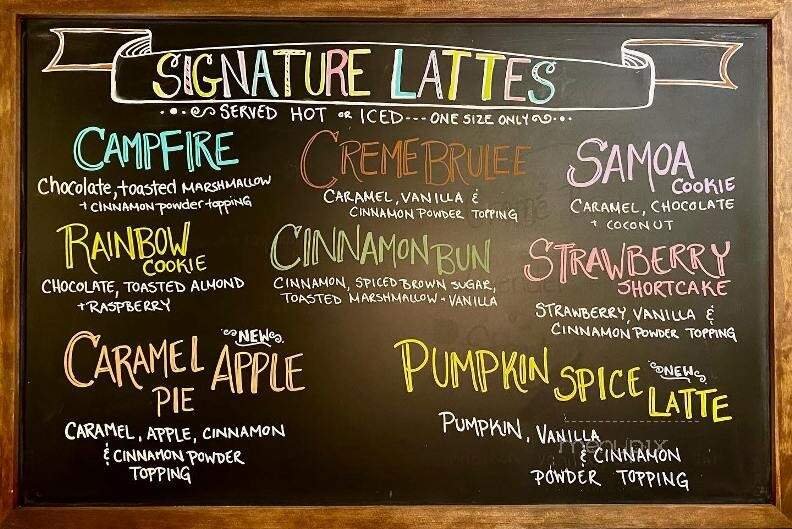 SIGNATURE LATTES
SERVED HOT OR ICED --- ONE SIZE ONLY
CAMPFIRE
Chocolate, toasted MARSHMALLOW
+ CINNAMON powder topping
CREME BRULEE
CARAMEL, VANILLA &
CINNAMON POWDER TOPPING
SAMOA
COOKIE
CARAMEL, CHOCOLATE
+ COCONUT
RAINBOW
COOKIE
CHOCOLATE, TOASTED ALMOND
+ RASPBERRY
CINNAMON BUN
CINNAMON, SPICED BROWN SUGAR,
TOASTED MARSHMALLOW + VANILLA
STRAWBERRY
SHORTCAKE
STRAWBERRY, VANILLA &
CINNAMON POWDER TOPPING
NEW
CARAMEL APPLE
PIE
CARAMEL, APPLE, CINNAMON
& CINNAMON POWDER
TOPPING
NEW
PUMPKIN SPICE
LATTE
PUMPKIN, VANILLA
& CINNAMON
POWDER TOPPING
menupix